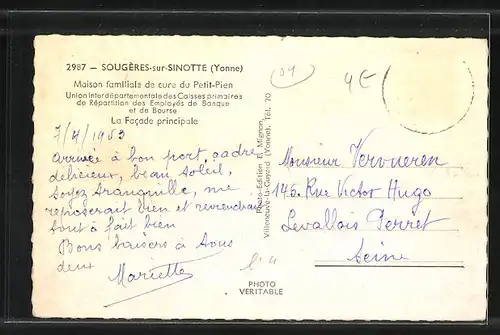 2987 — SOUGÈRES-sur-SINOTTE (Yonne)
Maison familiale de cure du Petit-Pien
Union Interdépartementale des Caisses primaires
de Répartition des Employés de Banque
et de Bourse
La Façade principale
7/4/1953
arrivée à bon port, cadre
délicieux, beau soleil,
soyez tranquille, me
reposerait bien et reviendrait
tout à fait bien
Bons baisers à tous
deux
Mariette
Photo-Edition E. Mignon,
Villeneuve-la-Guyard (Yonne), Tél. 70
PHOTO
VERITABLE
4E
Monsieur Vervueren
146 Rue Victor Hugo
Levallois Perret
Seine